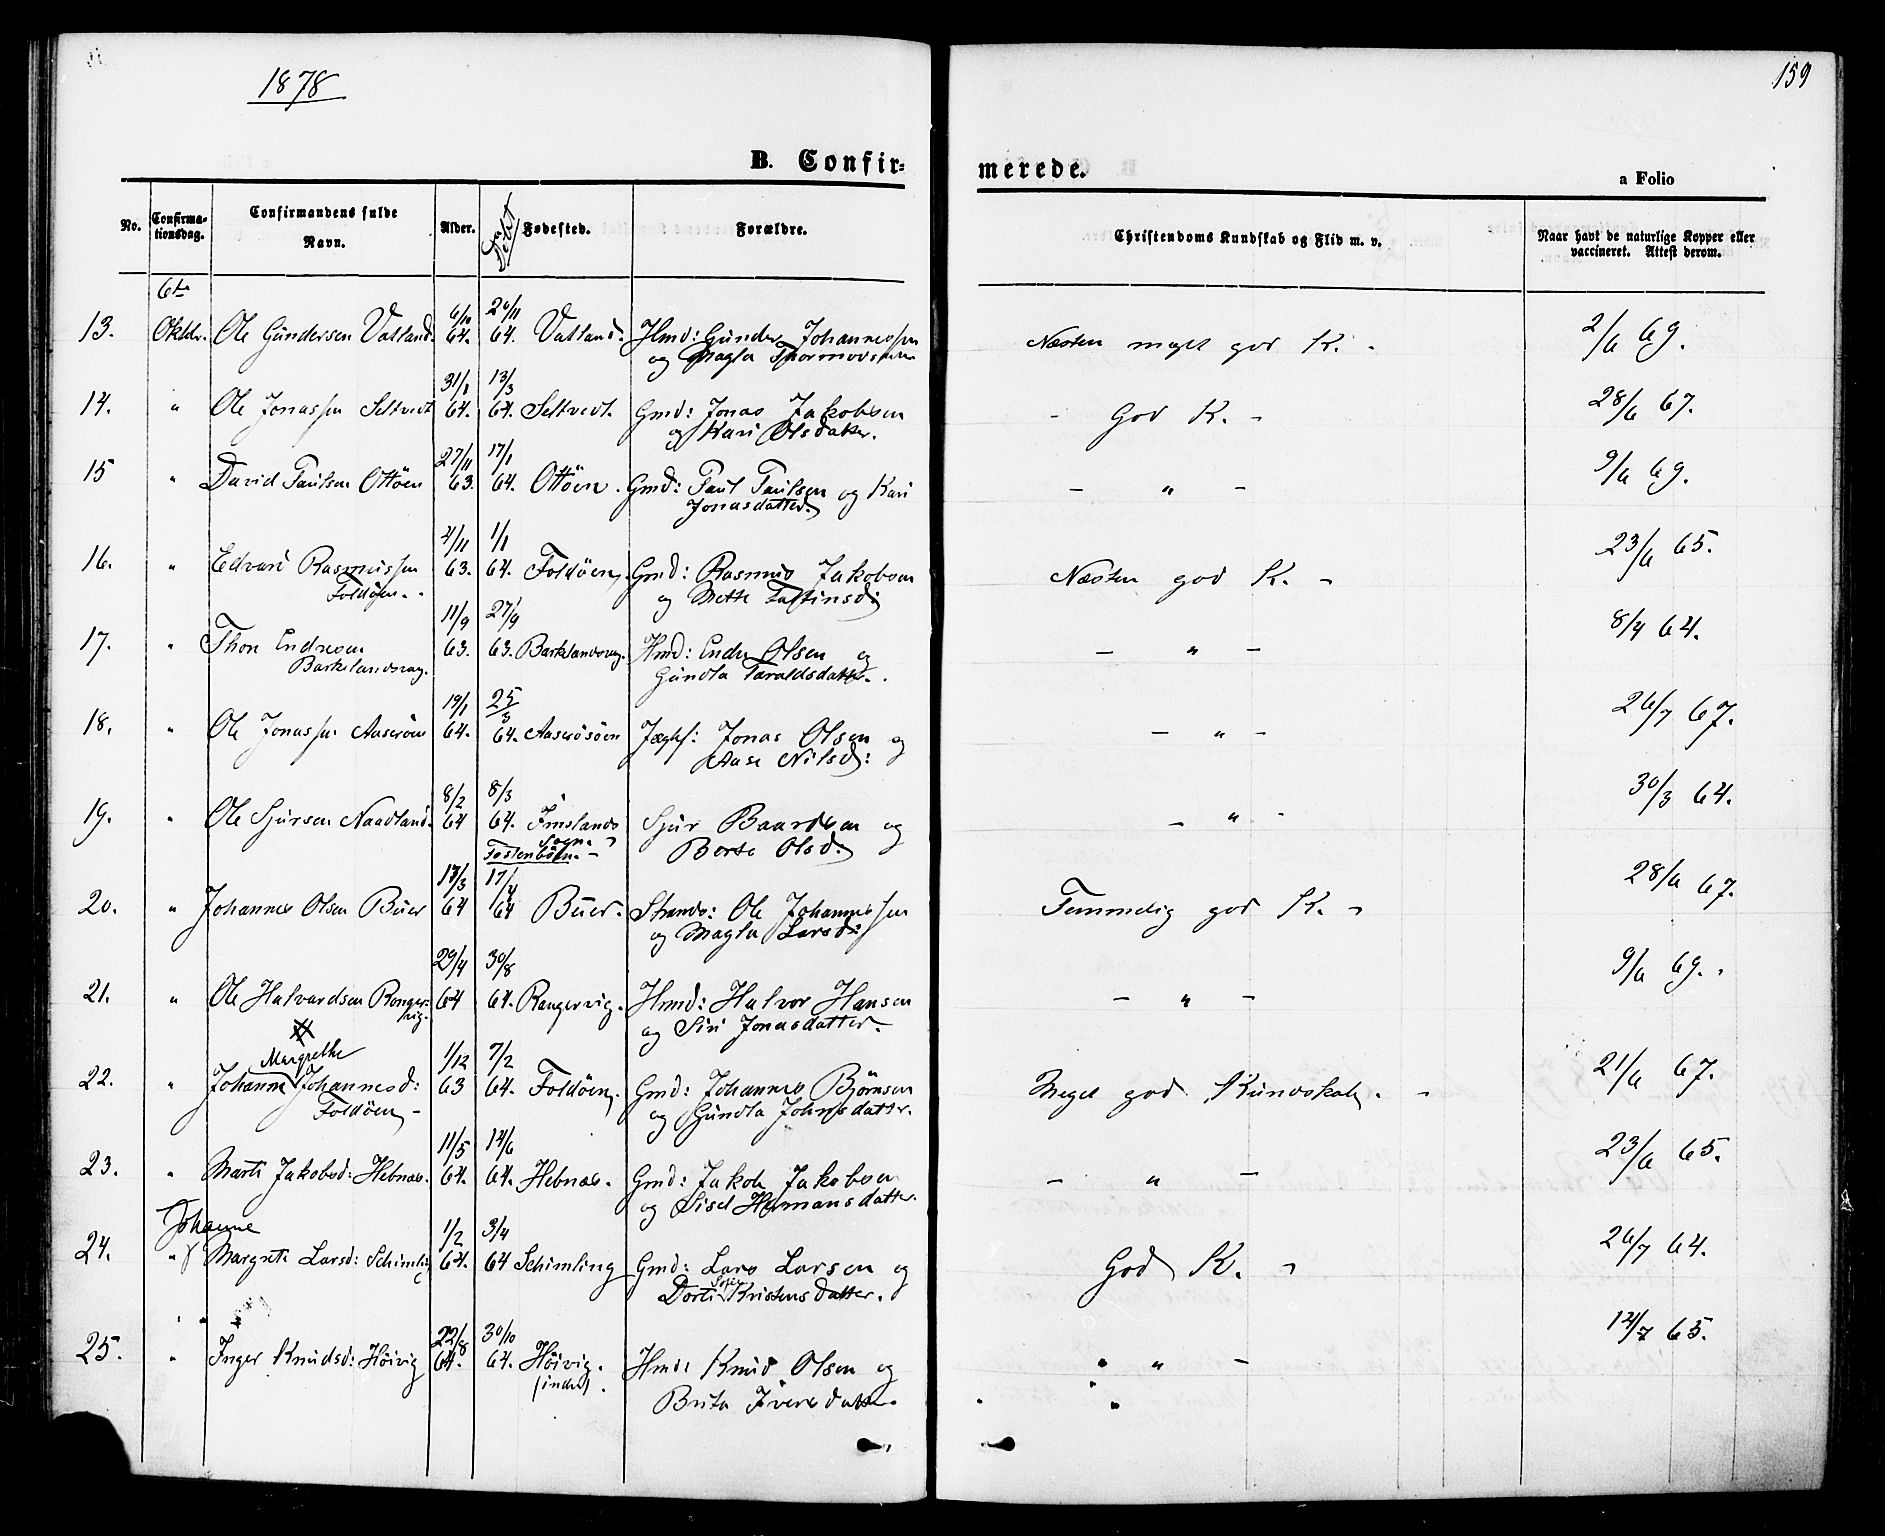 1878
159
B. Confir-
merede.
a Folio
No.
Confirma-
tionsdag.
Confirmandens fulde
Navn.
Alder.
Døbt
Fødested.
Forældre.
Christendoms Kundskab og Flid m. v.
Naar havt de naturlige Kopper eller
vaccineret. Attest derom.
6te 6/10 20/11
13. Oktbr. Ole Gundersen Vatland. 64. 64. Vatland. Hmd: Gunder Johannessen Næsten meget god K. - 2/6 69.
og Magla Thormodsdatter
31/1 13/3
14. " Ole Jonassen Seltvedt 64. 64. Seltvedt. Gmd: Jonas Jakobsen - God K. - 28/6 67.
og Kari Olsdatter.
27/11 17/1
15 " David Paulsen Ottöen 63. 64. Ottöen. Gmd: Paul Paulsen og Kari - " - 9/6 69.
Jonasdatter
4/11 1/1
16. " Edvard Rasmussen 63. 64. Foldöen. Gmd: Rasmus Jakobsen Næsten god K. - 23/6 65.
Foldöen. og Mette Tostinsd:
11/9 27/9
17. " Thon Endresen 63. 63. Barklandsvag. Hmd: Endre Olsen og - " - 8/7 64.
Barkelandsvag. Gundla Taraldsdatter.
19/1 25/3
18. " Ole Jonassen Aaseröen 64. 64. Aaserösöen Jægtsf: Jonas Olsen og - " - 26/7 67.
Aase Nilsd:
8/2 8/3
19. " Ole Sjursen Naadland. 64 64. Imslands Sjur Baardsen og - " - 30/3 64.
Sogn. Berte Olsd.
Fostersön. -
17/3 17/4
20. " Johannes Olsen Buer 64 64 Buer. Strands: Ole Johannessen Temmelig god K. - 28/6 67.
og Magla Larsd:
29/4 30/8
21. " Ole Halvardsen Ronger- 64 64. Rangervig. Hmd: Halvor Hansen - " - 9/6 69.
vig. og Siri Jonasdatter.
Margrethe 1/12 7/2
22. " Johanne Johannesd: 63 64. Foldöen. Gmd: Johannes Björnsen Meget god Kundskab. - 21/6 67.
Foldöen - og Gundla Johnsdatter.
11/5 12/6
23. " Marte Jakobsd: Hebnes. 64. 64. Hebnes. Gmd: Jakob Jakobsen - " - 23/6 65.
og Sisel Hermansdatter.
Johanne 1/2 3/4
24. " Margrete Larsd: Schimling 64. 64 Schimling Gmd: Lars Larsen og God K. - 26/7 64.
Dorte Sofie Kristensdatter.
22/8 30/10
25. " Inger Knudsd: Höivig 64. 64. Höivig. Hmd: Knud Olsen og " - 12/7 65.
(indre). Brita Iversdatter.